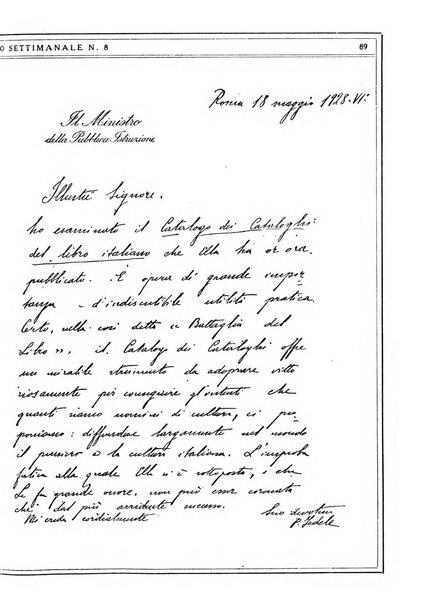 O SETTIMANALE N. 8
89
Roma 18 maggio 1928. VIº
Il Ministro
della Pubblica Istruzione
Illustre Signore.
ho esaminato il Catalogo dei Cataloghi
del libro italiano che Ella ha or ora
pubblicato. È opera di grande impor
tanza e d'indiscutibile utilità pratica.
Certo, nella così detta « Battaglia del
Libro », il Catalogo dei Cataloghi offre
un mirabile strumento da adoprare vitto
riosamente per conseguire gl'intenti che
quanti siamo uomini di cultura, ci pro
poniamo: diffondere largamente nel mondo
il pensiero e la cultura italiana. L'improba
fatica alla quale Ella si è sottoposta, e che
Le fa grande onore, non può esser coronata
che dal più arridente successo.
Mi creda cordialmente
Suo devotmo
P. Fedele